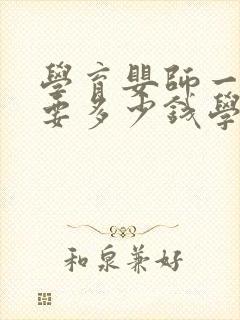 學育嬰師一
要多少錢學
和泉兼好